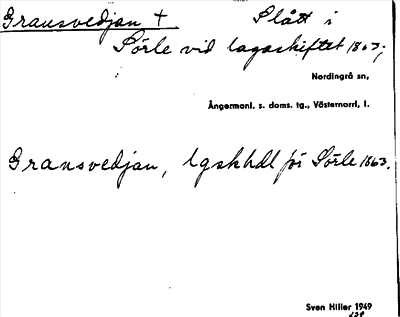 Gransvedjan + Slått i
Sörle vid lagaskiftet 1863;
Nordingrå sn,
Ångermanl. s. doms. tg., Västernorrl, l.
Gransvedjan, lgskhdl för Sörle 1863.
Sven Hiller 1949